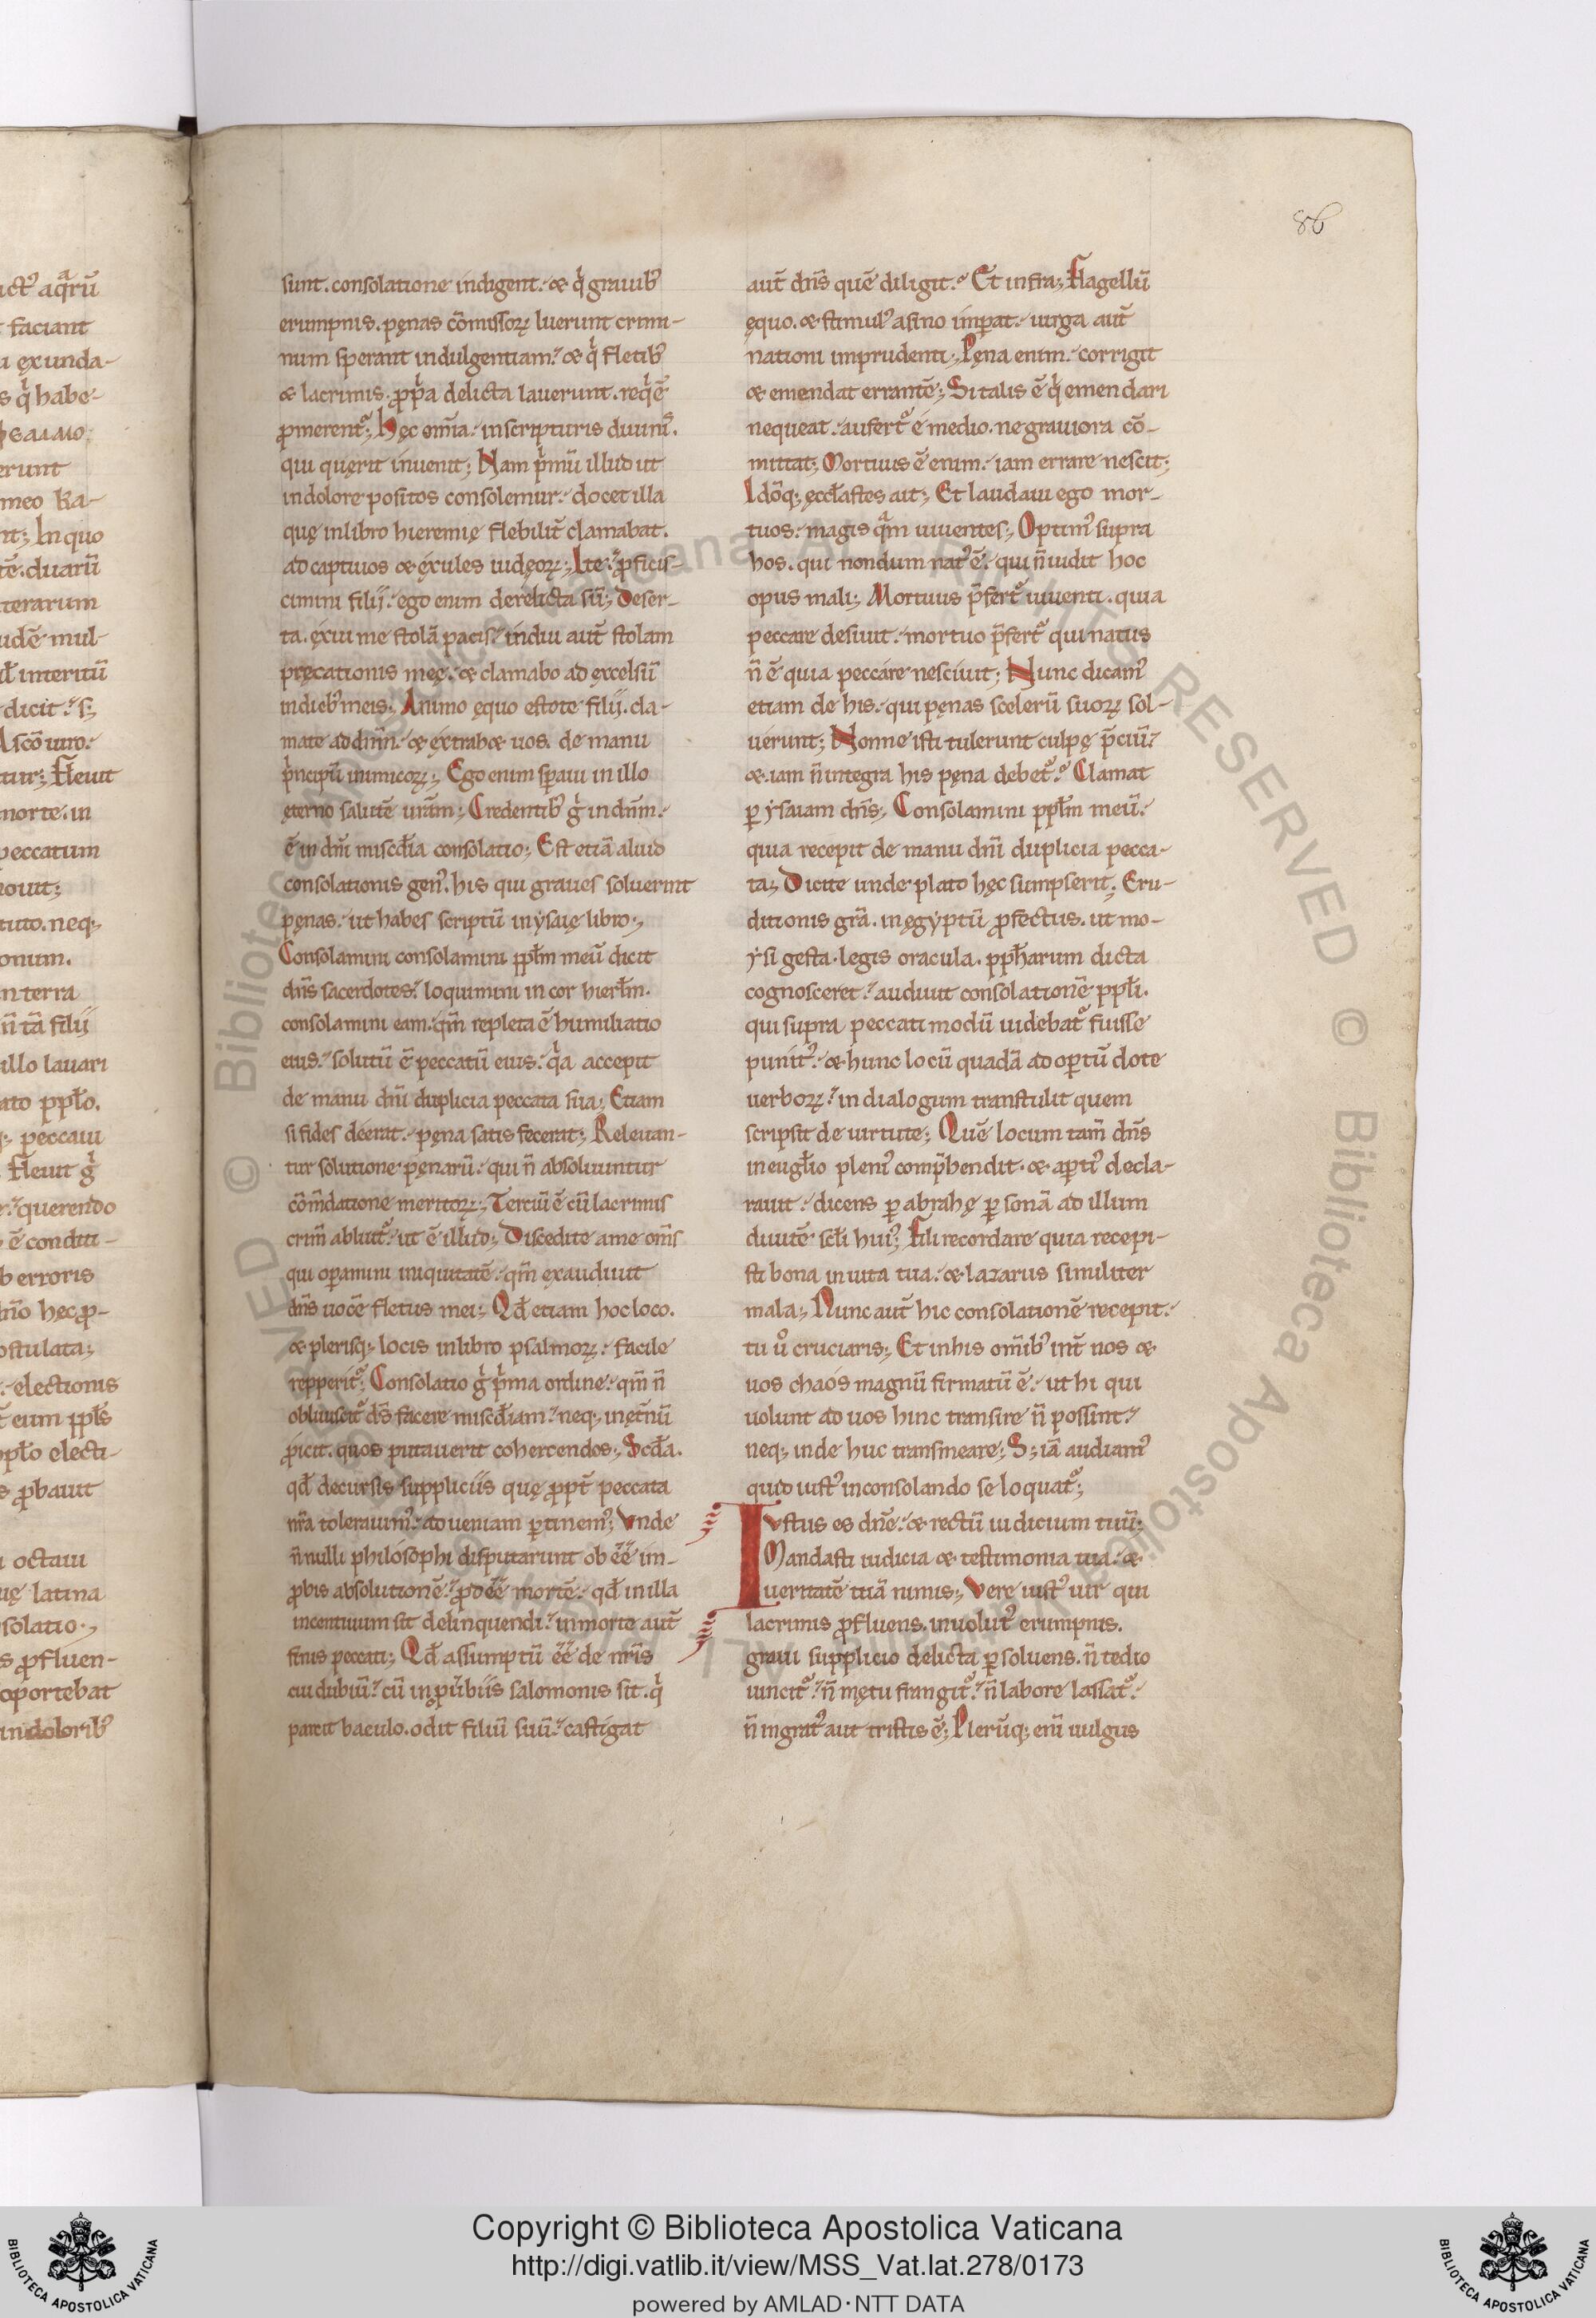 86
sunt. consolatione indigent. & qͥ grauibꝰ
erumpnis. pęnas cōmissoꝝ luerunt crimi-
num sperant indulgentiam. & qͥ fletibꝰ
& lacrimis. ꝓpͥa delicta lauerunt. reqͥē
ꝓmerent᷑; Hęc om̄ia. inscripturis diuinis.
qui quęrit inuenit; Nam pͥmū illud ut
indolore positos consolemur. docet illa
quę inlibro hieremię flebilit̄ clamabat.
ad captiuos & éxules iudęoꝝ; Ite. ꝓficis-
cimini filij. ego enim derelicta sū; Deser-
ta. éxui me stolā pacis. indui aut̄ stolam
pręcationis meę. & clamabo ad excelsū
indiebꝰ meis; Animo ęquo estote filij. cla-
mate ad dn̄m. & éxtrahet uos. de manu
pͥncipū inimicoꝝ; Ego enim spaui in illo
ęterno salutē urām; Credentibꝰ gͥ indn̄m.
ē in dn̄i misc̄dia consolatio; Est etiā aliud
consolationis genꝰ. his qui graues soluerint
pęnas. ut habes scriptū inysaię libro;
Consolamini consolamini ppl̄m meū dicit
dn̄s sacerdotes. loquimini in cor hierl̄m.
consolamini eam. qm̄ repleta ē humiliatio
eius. solutū ē peccatū eius. qͥa accepit
de manu dn̄i duplicia peccata sua; Etiam
si fides déerat. pęna satis fecerat; Releuan-
tur solutione pęnarū. qui n̄ absoluuntur
cōm̄datione meritoꝝ; Terciū ē cū lacrimis
crim̄ abluit᷑. ut ē illud; Discedite ame om̄s
qui opamini iniquitatē. qm̄ exaudiuit
dn̄s uocē fletus mei; Qd̄ etiam hoc loco.
& plerisq; locis inlibro psalmoꝝ. facile
repperit᷑; Consolatio gͥ pͥma ordine. qm̄ n̄
obliuiscit᷑ ds̄ facere misc̄diam. neq; inęt̄nū
ꝓicit. quos putauerit cohercendos; Scd̄a.
qd̄ decursis suppliciis quę ꝓpt̄ peccata
nr̄a tolerauimꝰ. ad ueniam ꝑtinemꝰ; Vnde
n̄nulli philósophi disputarunt ob eē im-
ꝓbis absolutionē. ꝓd eē mortē. qd̄ inilla
incentiuum sit delinquendi. inmorte aut̄
finis peccati; Qd̄ assumptū eē de nr̄is
cui dubiū. cū inꝓūbiis salomonis sit. qͥ
parcit baculo. odit filiū suū. castigat
aut̄ dn̄s quē diligit. Et infra; Flagellū
ęquo. & stimulꝰ asino imꝑat. uirga aut̄
nationi imprudenti; Pęna enim. corrigit
& emendat errantē; Si talis ē qͥ emendari
nequeat. aufert᷑ é medio. ne grauiora cō-
mittat; Mortuus ē enim. iam errare nescit;
Idōq; ęccl̄astes ait; Et laudaui ego mor-
tuos. magis qͣm uiuentes; Optimꝰ supra
hos. qui nondum natꝰ ē. qui n̄ uidit hoc
opus mali; Mortuus p̄fert᷑ uiuenti. quia
peccare desiuit. mortuo p̄fert᷑ qui natus
n̄ ē quia peccáre nesciuit; Nunc dicamꝰ
etiam de his. qui pęnas scelerū suoꝝ sol-
uérunt; Nonne isti tulerunt culpę p̄ciū?
& iam n̄ integra his pęna debet᷑. Clamat
ꝑ ysaiam dn̄s; Consolamini ppl̄m meū.
quia recepit de manu dn̄i duplicia pecca-
ta; Dicite unde plato hęc sumpserit; Eru-
ditionis grā. in ęgyptū ꝓfectus. ut mo-
ysi gesta. legis oracula. pph̄arum dicta
cognosceret. audiuit consolationē ppl̄i.
qui supra peccati modū uidebat᷑ fuisse
punitꝰ. & hunc locū quadā adoꝑtū dote
uerboꝝ. in dialogum transtulit quem
scripsit de uirtute; Quē locum tam̄ dn̄s
in eugl̄io pleniꝰ comp̄hendit. & aꝑtiꝰ decla-
rauit. dicens ꝑ abrahę ꝑsonā ad illum
diuitē scl̄i huiꝰ; Fili recordare quia recepi-
sti bona in uita tua. & lazarus similiter
mala; Nunc aut̄ hic consolationē recepit.
tu uͦ cruciaris; Et inhis om̄ibꝰ int̄ nos &
uos chaós magnū firmatū ē. ut hi qui
uolunt ad uos hinc transire n̄ possint.
neq; inde huc transmeare; S; iā audiamꝰ
quid iustꝰ inconsolando se loquat᷑;
Iustus es dn̄e. & rectū iudicium tuū;
Mandasti iudicia & testimonia tua. &
ueritatē tuā nimis; Vere iustꝰ uir qui
lacrimis ꝓfluens. inuolutꝰ erumpnis.
graui supplicio delicta ꝑsoluens. n̄ tedio
uincit᷑. n̄ mętu frangit᷑. n̄ labore lassat᷑.
n̄ ingratꝰ aut tristis ē; Plerūq; eni uulgus
Copyright © Biblioteca Apostolica Vaticana
http://digi.vatlib.it/view/MSS_Vat.lat.278/0173
powered by AMLAD·NTT DATA